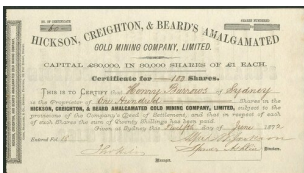 No. OF CERTIFICATE
SHARES NUMBERED
HICKSON, CREIGHTON, & BEARD'S AMALGAMATED
GOLD MINING COMPANY, LIMITED.
CAPITAL £20,000, IN 20,000 SHARES OF £1 EACH.
Certificate for 100 Shares.
THIS IS TO CERTIFY that Henry Burrows of Sydney
is the Proprietor of One Hundred Shares in the
HICKSON, CREIGHTON, & BEARD'S AMALGAMATED GOLD MINING COMPANY, LIMITED, subject to the
provisions of the Company's Deed of Settlement, and that in respect of each
of such Shares the sum of Twenty Shillings has been paid.
Given at Sydney this Twelfth day of June 1872
Entered Fol.
Directors.
Manager.